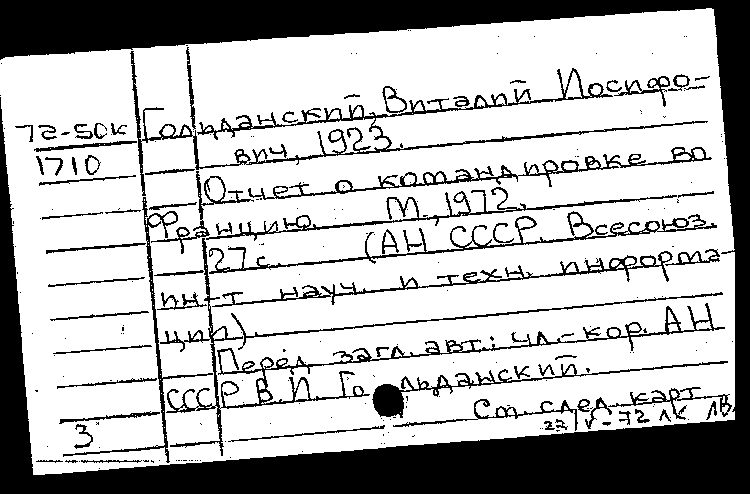 Гольданский, Виталий Иосифо-
72-50к
вич, 1923.
1710
Отчет о командировке во
Францию. М., 1972.
27с. (АН СССР. Всесоюз.
ин-т науч. и техн. информа-
ции).
Перед загл. авт.: чл.-кор. АН
СССР В.И. Гольданский.
См. след. карт
3
22/V-72 ЛК ЛВ